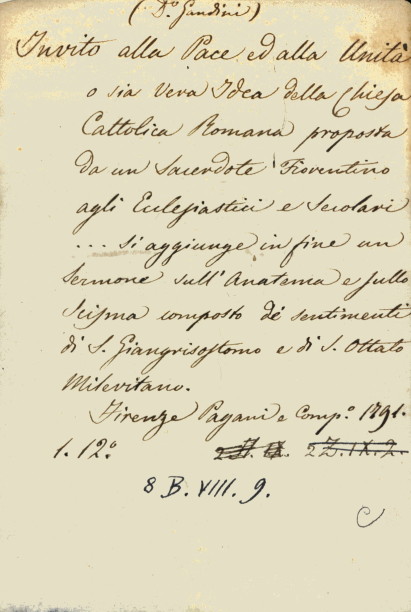 (D.º Gandini)
Invito alla Pace ed alla Unità
o sia Vera Idea della Chiesa
Cattolica Romana proposta
da un Sacerdote Fiorentino
agli Ecclesiastici e Secolari
... si aggiunge in fine un
Sermone sull'Anatema e sullo
Scisma composto de' sentimenti
di S. Giangrisostomo e di S. Ottato
Milevitano.
Firenze Pagani e Comp.º 1791.
1. 12.º 2 Z. IX. 2.
8 B. VIII. 9.
C